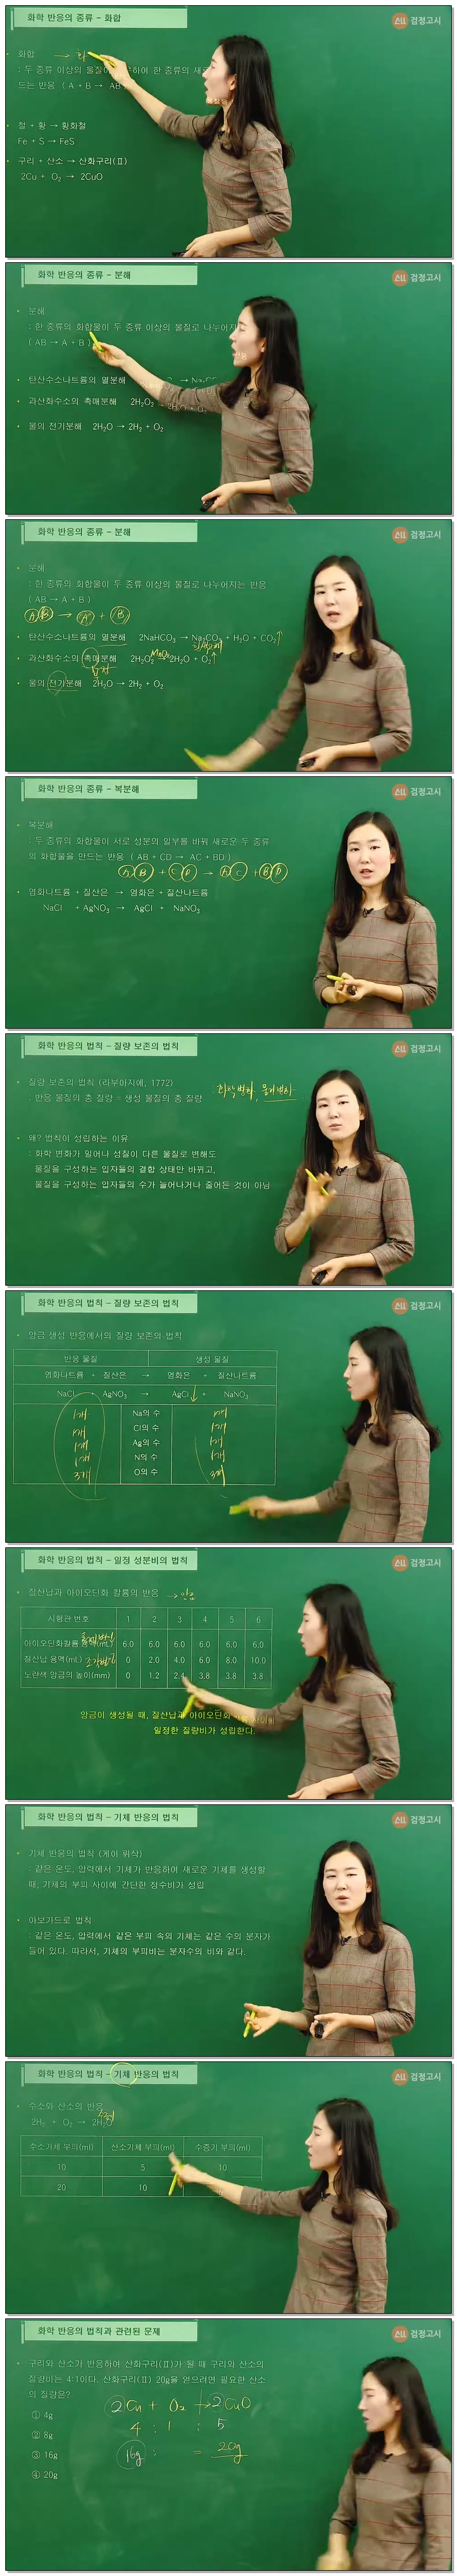 화학 반응의 종류 - 화합
ALL 검정고시
• 화합 →
: 두 종류 이상의 물질이 하여 한 종류의
드는 반응 ( A + B → AB
• 철 + 황 → 황화철
Fe + S → FeS
• 구리 + 산소 → 산화구리(Ⅱ)
2Cu + O₂ → 2CuO
화학 반응의 종류 - 분해
ALL 검정고시
• 분해
: 한 종류의 화합물이 두 종류 이상의 물질로 나누어지
( AB → A + B )
• 탄산수소나트륨의 열분해
• 과산화수소의 촉매분해 2H₂O₂ → 2H₂O + O₂
• 물의 전기분해 2H₂O → 2H₂ + O₂
화학 반응의 종류 - 분해
ALL 검정고시
• 분해
: 한 종류의 화합물이 두 종류 이상의 물질로 나누어지는 반응
( AB → A + B )
A B → A + B
• 탄산수소나트륨의 열분해 2NaHCO₃ → Na₂CO₃ + H₂O + CO₂↑
• 과산화수소의 촉매분해 2H₂O₂ MnO₂ 2H₂O + O₂↑
• 물의 전기분해 2H₂O → 2H₂ + O₂
화학 반응의 종류 - 복분해
ALL 검정고시
• 복분해
: 두 종류의 화합물이 서로 성분의 일부를 바꿔 새로운 두 종류
의 화합물을 만드는 반응 ( AB + CD → AC + BD )
A B + C D → A C + B D
• 염화나트륨 + 질산은 → 염화은 + 질산나트륨
NaCl + AgNO₃ → AgCl + NaNO₃
화학 반응의 법칙 - 질량 보존의 법칙
ALL 검정고시
• 질량 보존의 법칙 (라부아지에, 1772)
: 반응 물질의 총 질량 = 생성 물질의 총 질량
화학변화, 물리변화
• 왜? 법칙이 성립하는 이유
: 화학 변화가 일어나 성질이 다른 물질로 변해도
물질을 구성하는 입자들의 결합 상태만 바뀌고,
물질을 구성하는 입자들의 수가 늘어나거나 줄어든 것이 아님
화학 반응의 법칙 - 질량 보존의 법칙
ALL 검정고시
• 앙금 생성 반응에서의 질량 보존의 법칙
반응 물질 생성 물질
염화나트륨 + 질산은 → 염화은 + 질산나트륨
NaCl + AgNO₃ → AgCl↓ + NaNO₃
1개 Na의 수 1개
1개 Cl의 수 1개
1개 Ag의 수 1개
1개 N의 수 1개
3개 O의 수 3개
화학 반응의 법칙 - 일정 성분비의 법칙
ALL 검정고시
• 질산납과 아이오딘화 칼륨의 반응 → 앙금
시험관 번호 1 2 3 4 5 6
아이오딘화칼륨 용액(mL) 6.0 6.0 6.0 6.0 6.0 6.0
질산납 용액(mL) 0 2.0 4.0 6.0 8.0 10.0
노란색 앙금의 높이(mm) 0 1.2 2.4 3.8 3.8 3.8
앙금이 생성될 때, 질산납과 아이오딘화
일정한 질량비가 성립한다.
화학 반응의 법칙 - 기체 반응의 법칙
ALL 검정고시
• 기체 반응의 법칙 (게이 뤼삭)
: 같은 온도, 압력에서 기체가 반응하여 새로운 기체를 생성할
때, 기체의 부피 사이에 간단한 정수비가 성립
• 아보가드로 법칙
: 같은 온도, 압력에서 같은 부피 속의 기체는 같은 수의 분자가
들어 있다. 따라서, 기체의 부피비는 분자수의 비와 같다.
화학 반응의 법칙 - 기체 반응의 법칙
ALL 검정고시
• 수소와 산소의 반응
2H₂ + O₂ → 2H₂O
수소기체 부피(ml) 산소기체 부피(ml) 수증기 부피(ml)
10 5 10
20 10
화학 반응의 법칙과 관련된 문제
ALL 검정고시
• 구리와 산소가 반응하여 산화구리(Ⅱ)가 될 때 구리와 산소의
질량비는 4:1이다. 산화구리(Ⅱ) 20g을 얻으려면 필요한 산소
의 질량은?
2Cu + O₂ → 2CuO
① 4g
4 : 1 : 5
② 8g
16g : = 20g
③ 16g
④ 20g